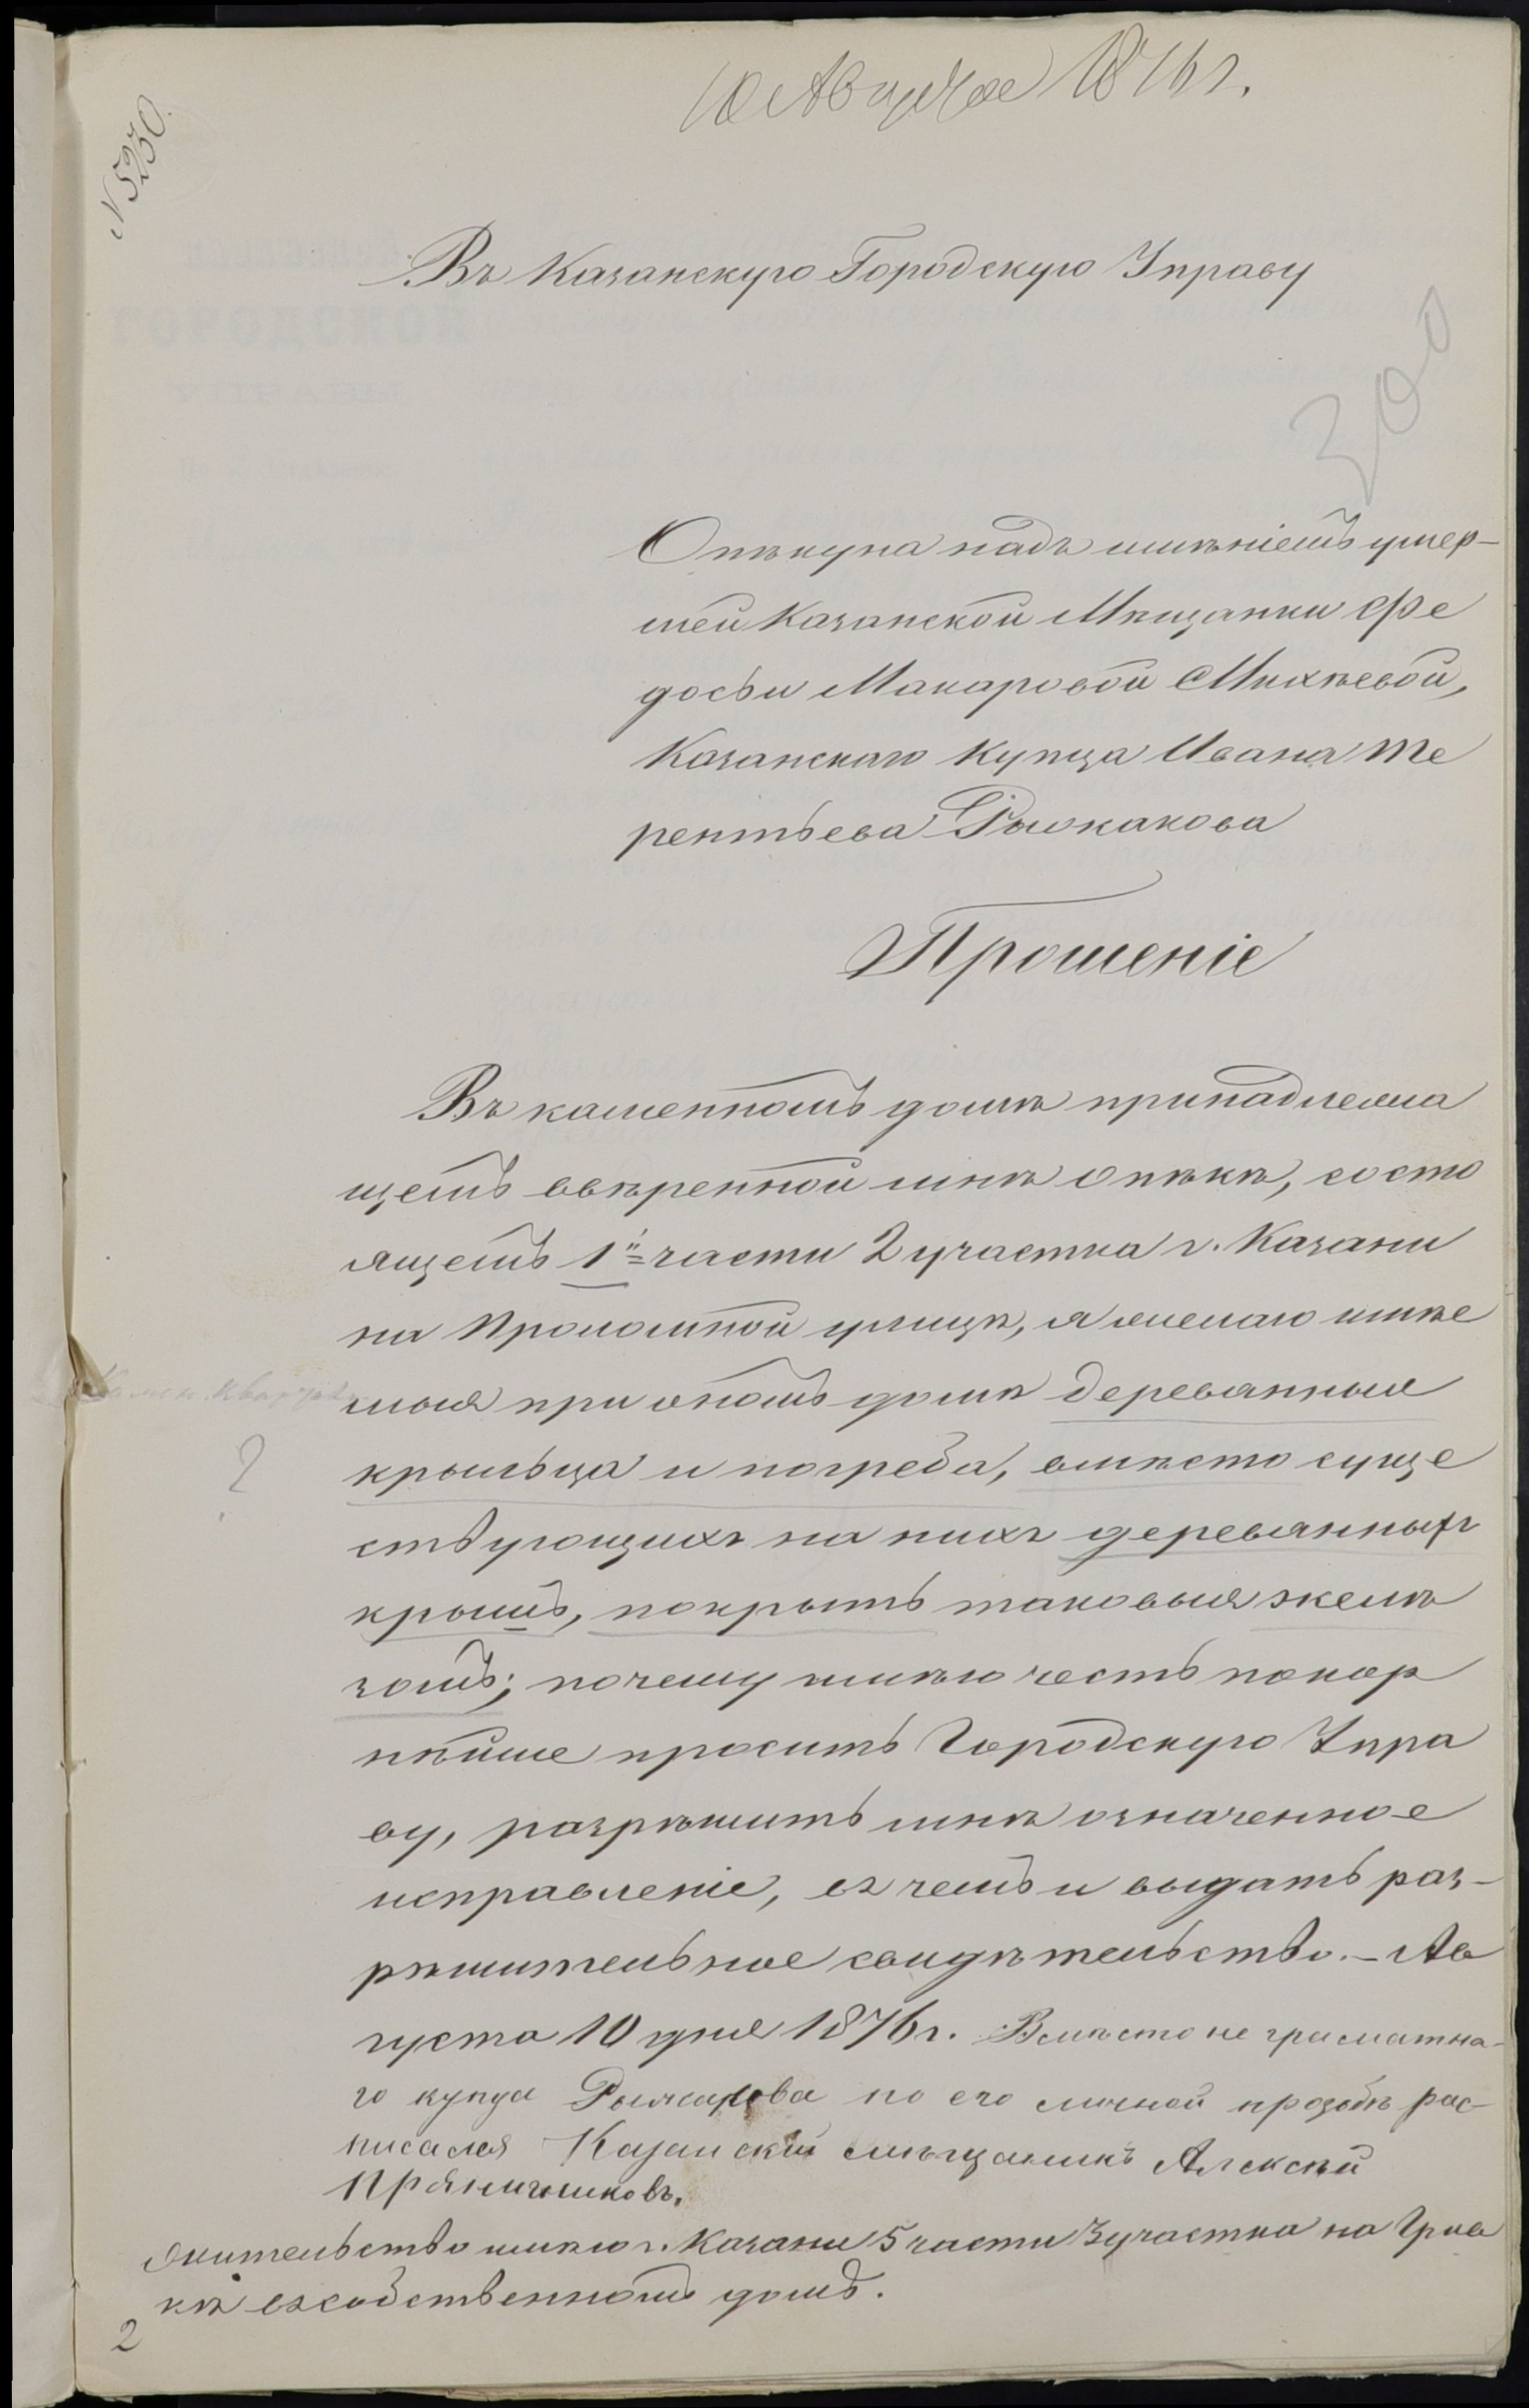 10 Августа 1876 г.
N 5230.
Въ Казанскую Городскую Управу
300
Опѣкуна надъ имѣніемъ умер-
шей Казанской Мѣщанки Фе
досьи Макаровой Михѣевой,
Казанскаго Купца Ивана Те
рентьева
Прошеніе
Въ каменномъ домѣ принадлежа
щемъ ввѣренной мнѣ опѣкѣ, состо
ящемъ 1й части 2 участка г. Казани
на Проломной улицѣ, я желаю имѣе
мыя при ономъ домѣ деревянныя
крыльца и погреба, вмѣсто суще
ствующихъ на нихъ деревянныхъ
крышъ, покрыть таковыя желѣ
зомъ; почему имѣю честь покор
нѣйше просить Городскую Упра
ву, разрѣшить мнѣ означенное
исправленіе, въ чемъ и выдать раз-
рѣшительное свидѣтельство. – Ав
густа 10 дня 1876 г. Вмѣсто не грамотна-
го купца по его личной прозбѣ рас-
писался Казанскій мѣщанинъ Алексѣй
Пряничниковъ.
Жительство имѣю г. Казани 5 части 3 участка на Грив
кѣ въ собственномъ домѣ.
?
2